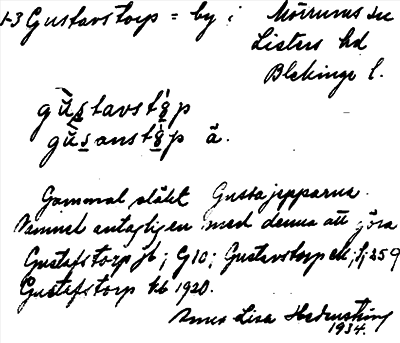 1-3 Gustavstorp = by i Mörrums sn
Listers hd
Blekinge l.
gùstavstǫ̀p
gùsanstǫ̀p ä.
Gammal släkt Gussajepparna.
Namnet antagligen med denna att göra
Gustafstorp jb; G10; Gustavstorp ek; Sj 259
Gustafstorp kb 1920.
Anna Lisa
1934.